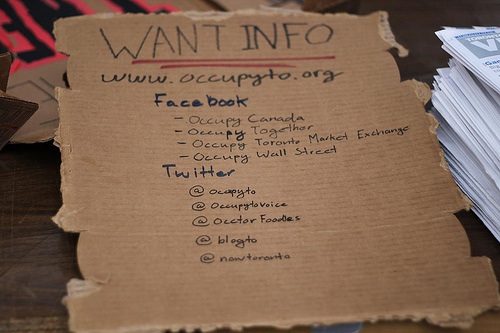 WANT INFO
www.occupyto.org
Facebook
- Occupy Canada
- Occupy Together
- Occupy Toronto Market Exchange
- Occupy Wall Street
Twitter
@ occupyto
@ occupytovoice
@ occtor Foodies
@ blogto
@ nowtoronto